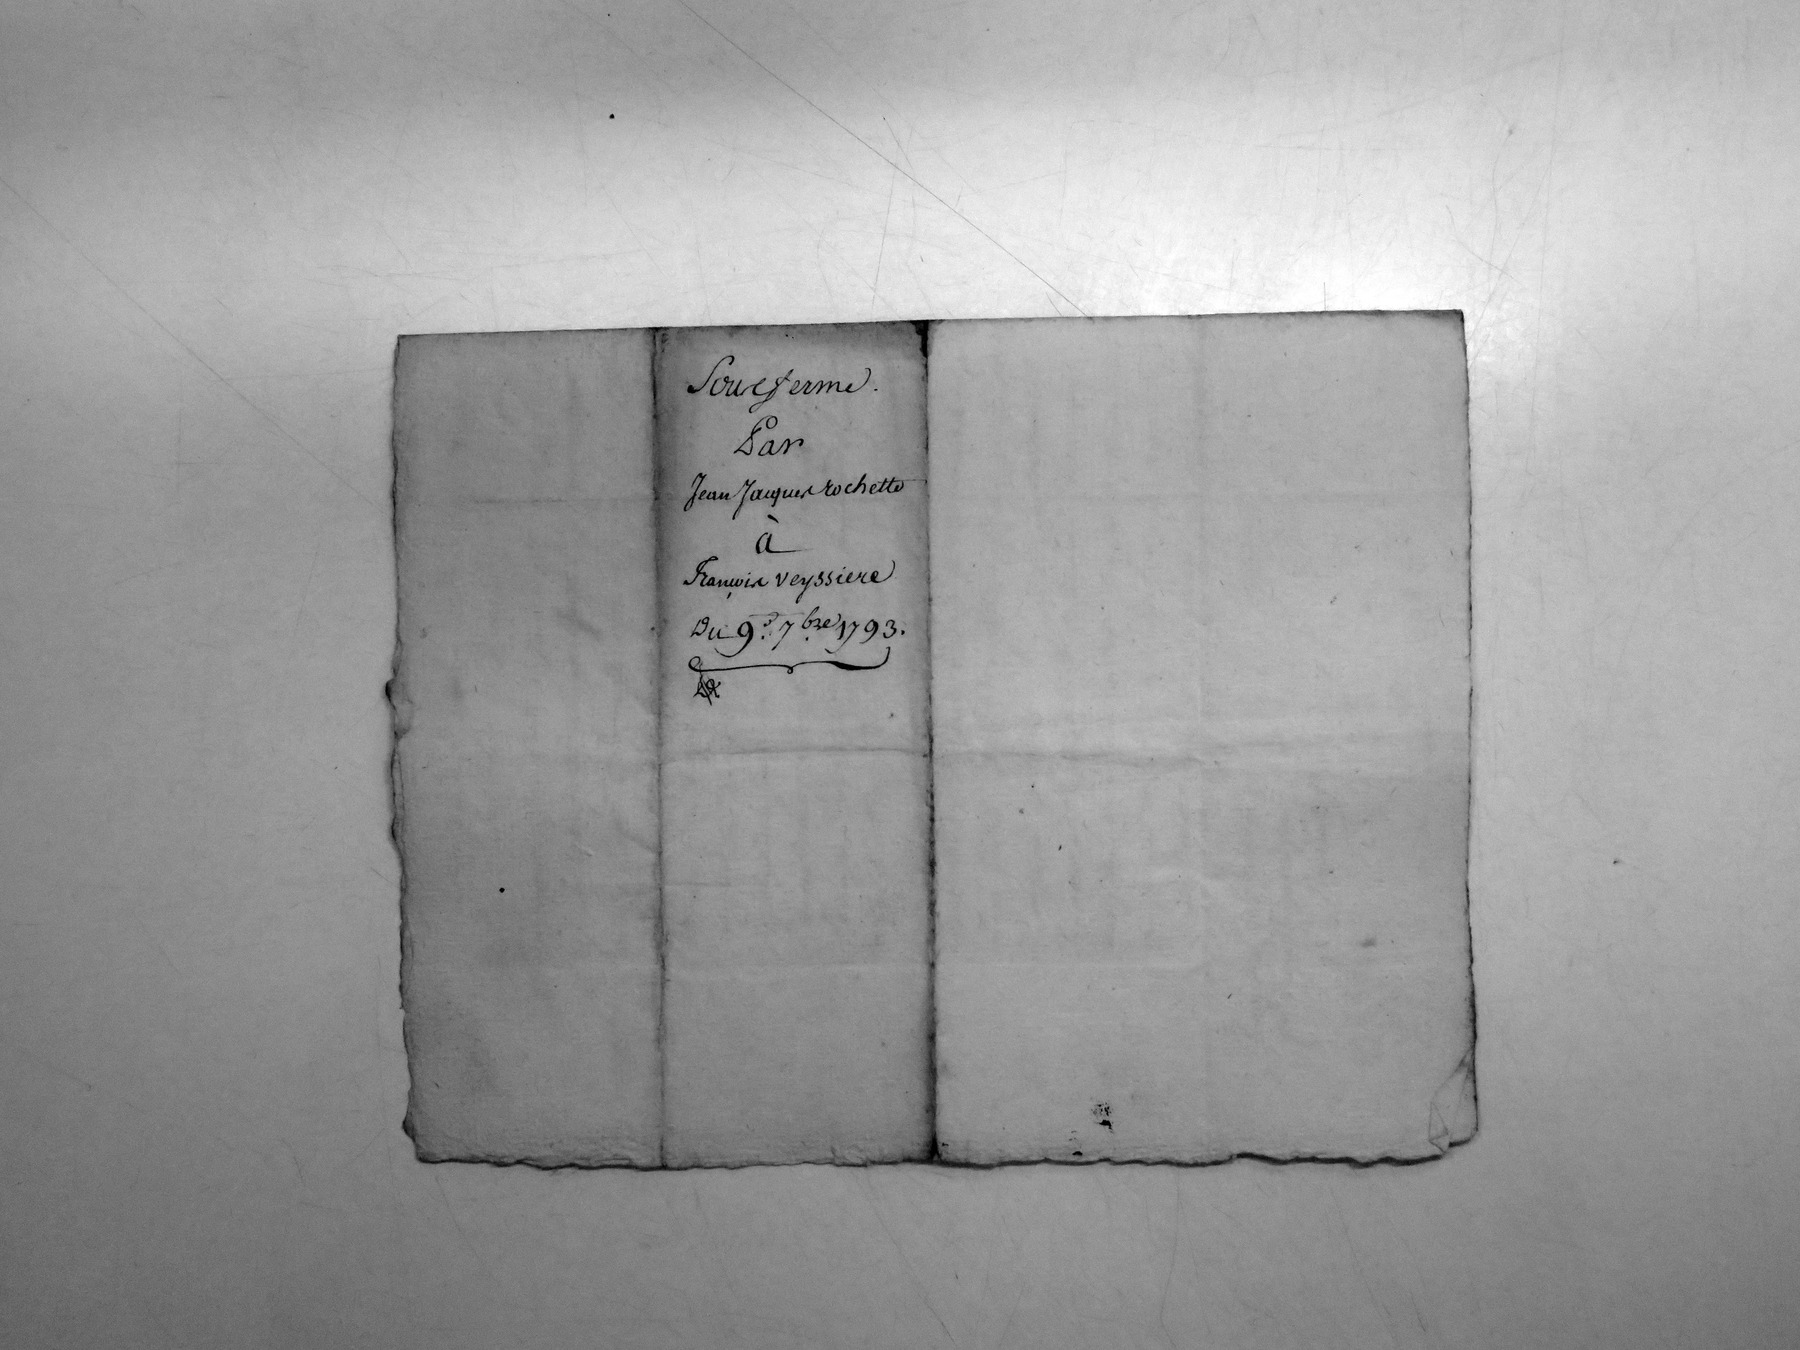 Sousferme.
Par
Jean Jacques rochette
à
François veyssiere
Du 9.e 7.bre 1793.